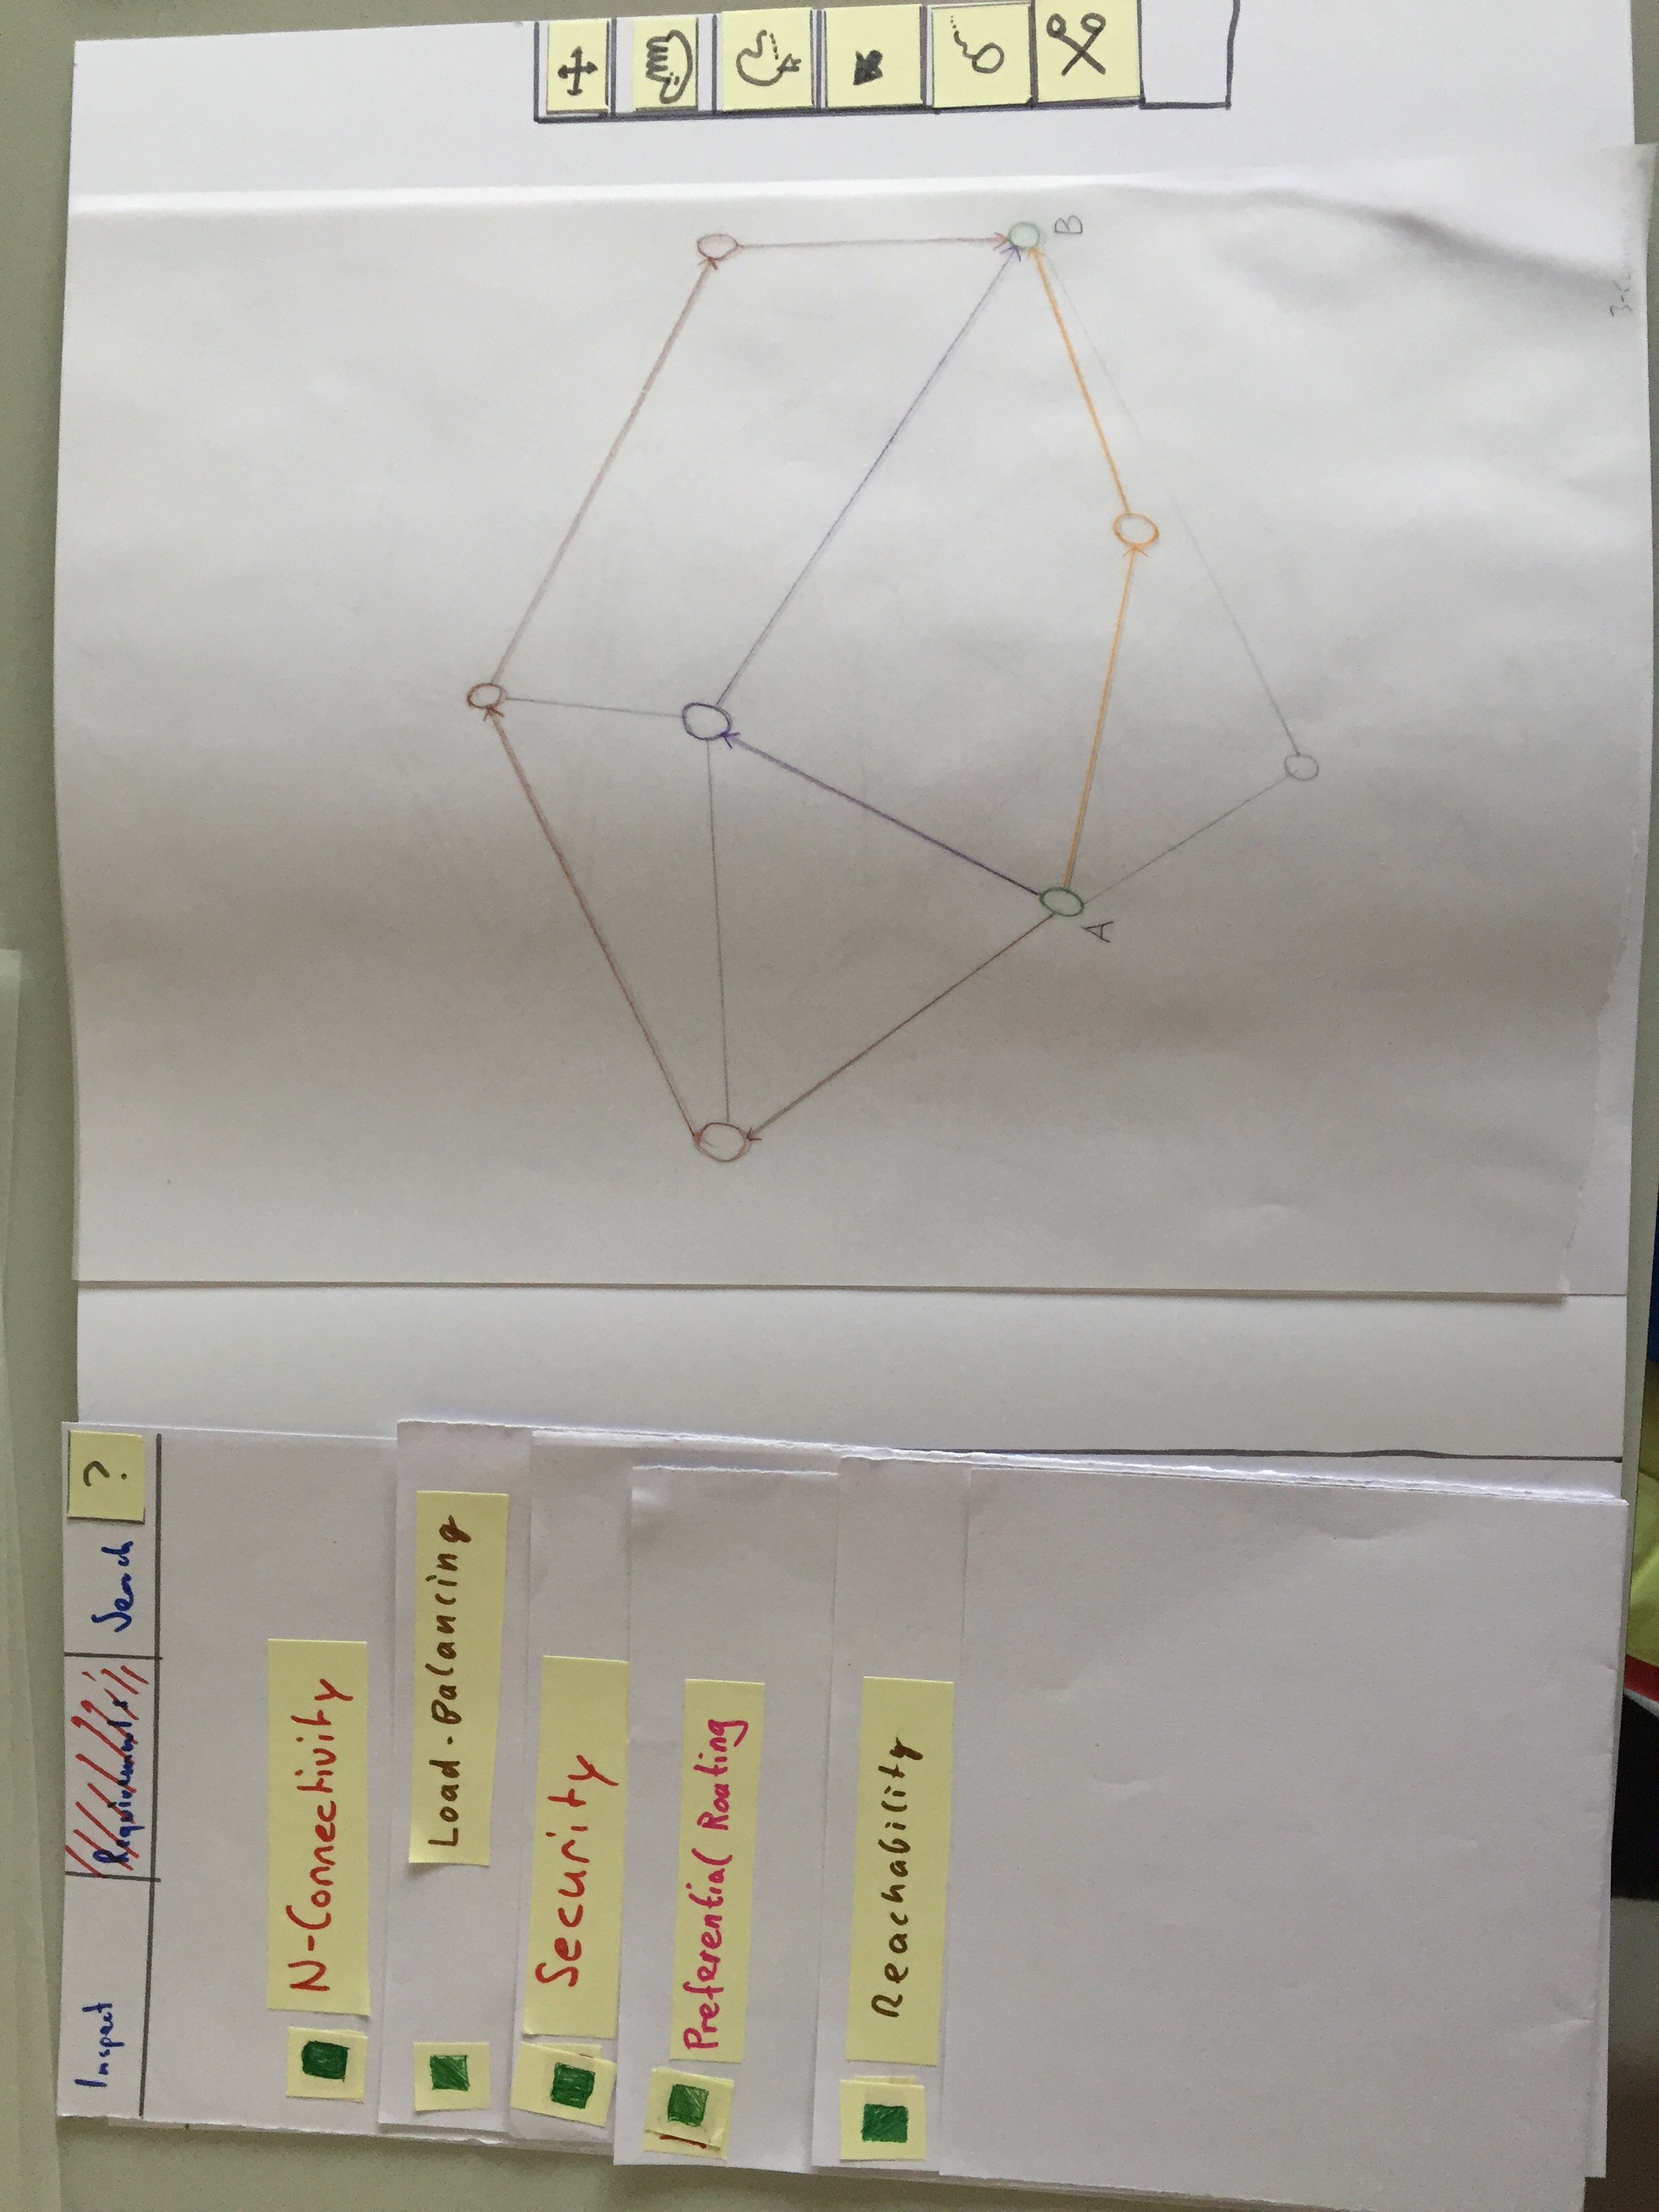 Inspect
Requirements
Search
?
N-Connectivity
Load-Balancing
Security
Preferential Routing
Reachability
A
B